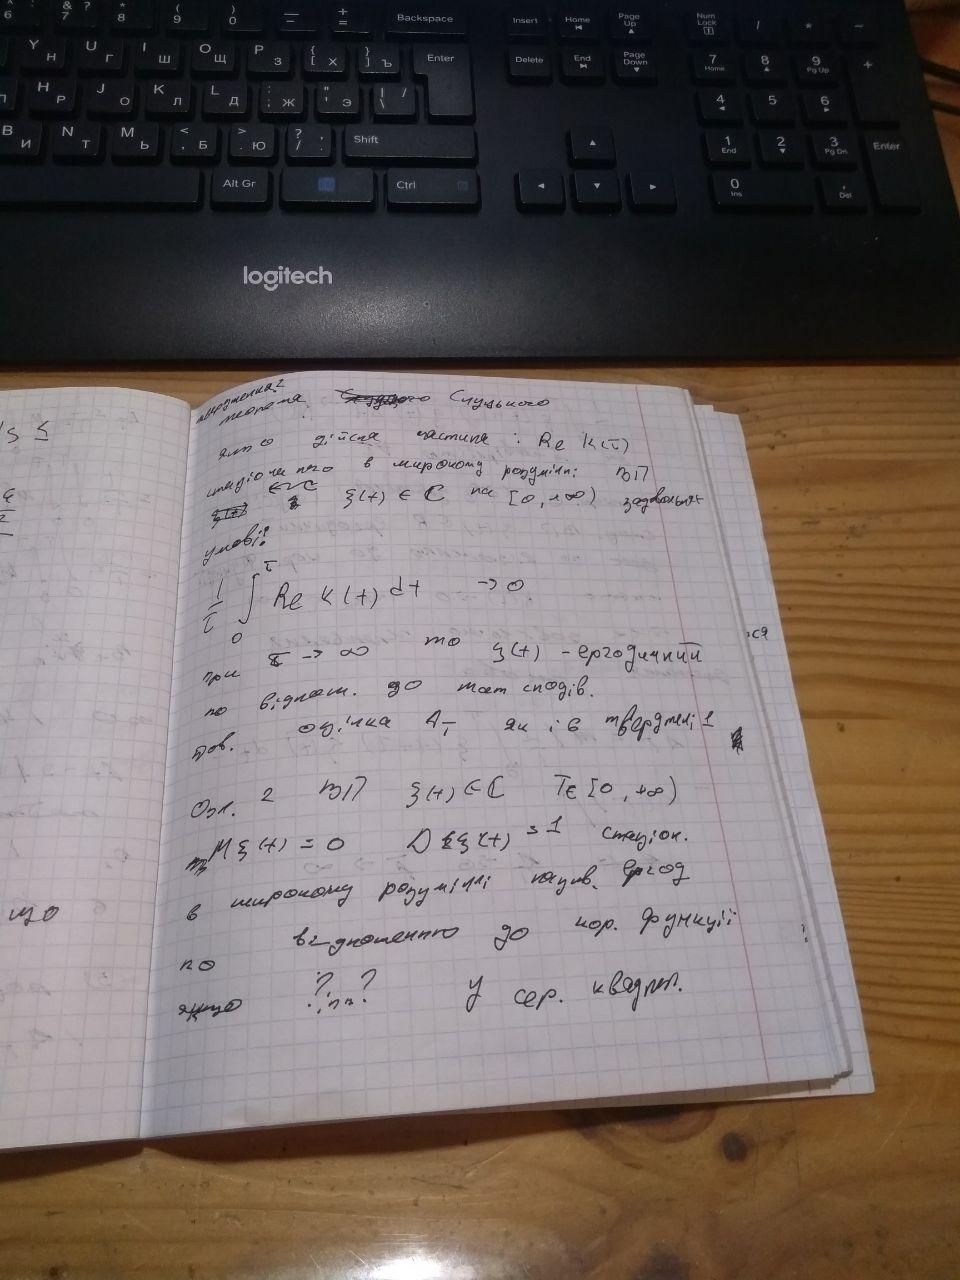 & ? * ( ) — + Backspace Insert Home Page Up Num Lock / * −
6 7 8 9 0 _ =
Y Н U Г I Ш O Щ P З { [ Х } ] Ъ Enter Delete End Page Down 7 Home 8 9 Pg Up +
H Р J О K Л L Д : ; Ж " ' Э | \ / 4 5 6
В И N Т M Ь < , Б > . Ю ? / : . Shift 1 End 2 3 Pg Dn Enter
Alt Gr Ctrl 0 Ins , Del
logitech
твердження 2
теорема Слуцького
якщо дійсна частина : Re K(τ)
стаціонарного в широкому розумінні: ВП
ξ(t) ∈ ℂ на [0, +∞) задовольняє
умові:
1/τ ∫₀^τ Re K(t) dt → 0
при τ → ∞ то ξ(t) - ергодичний
по віднош. до мат сподів.
Дов. оцінка A₋ як і в тверджені 1
Озн. 2 ВП ξ(t) ∈ ℂ T∈ [0, +∞)
M ξ(t) = 0 D ξ(t) = 1 стаціон.
в широкому розумінні назив. ергод
по відношенню до кор. функції
якщо ? ? у сер. квадрат.
що
ся